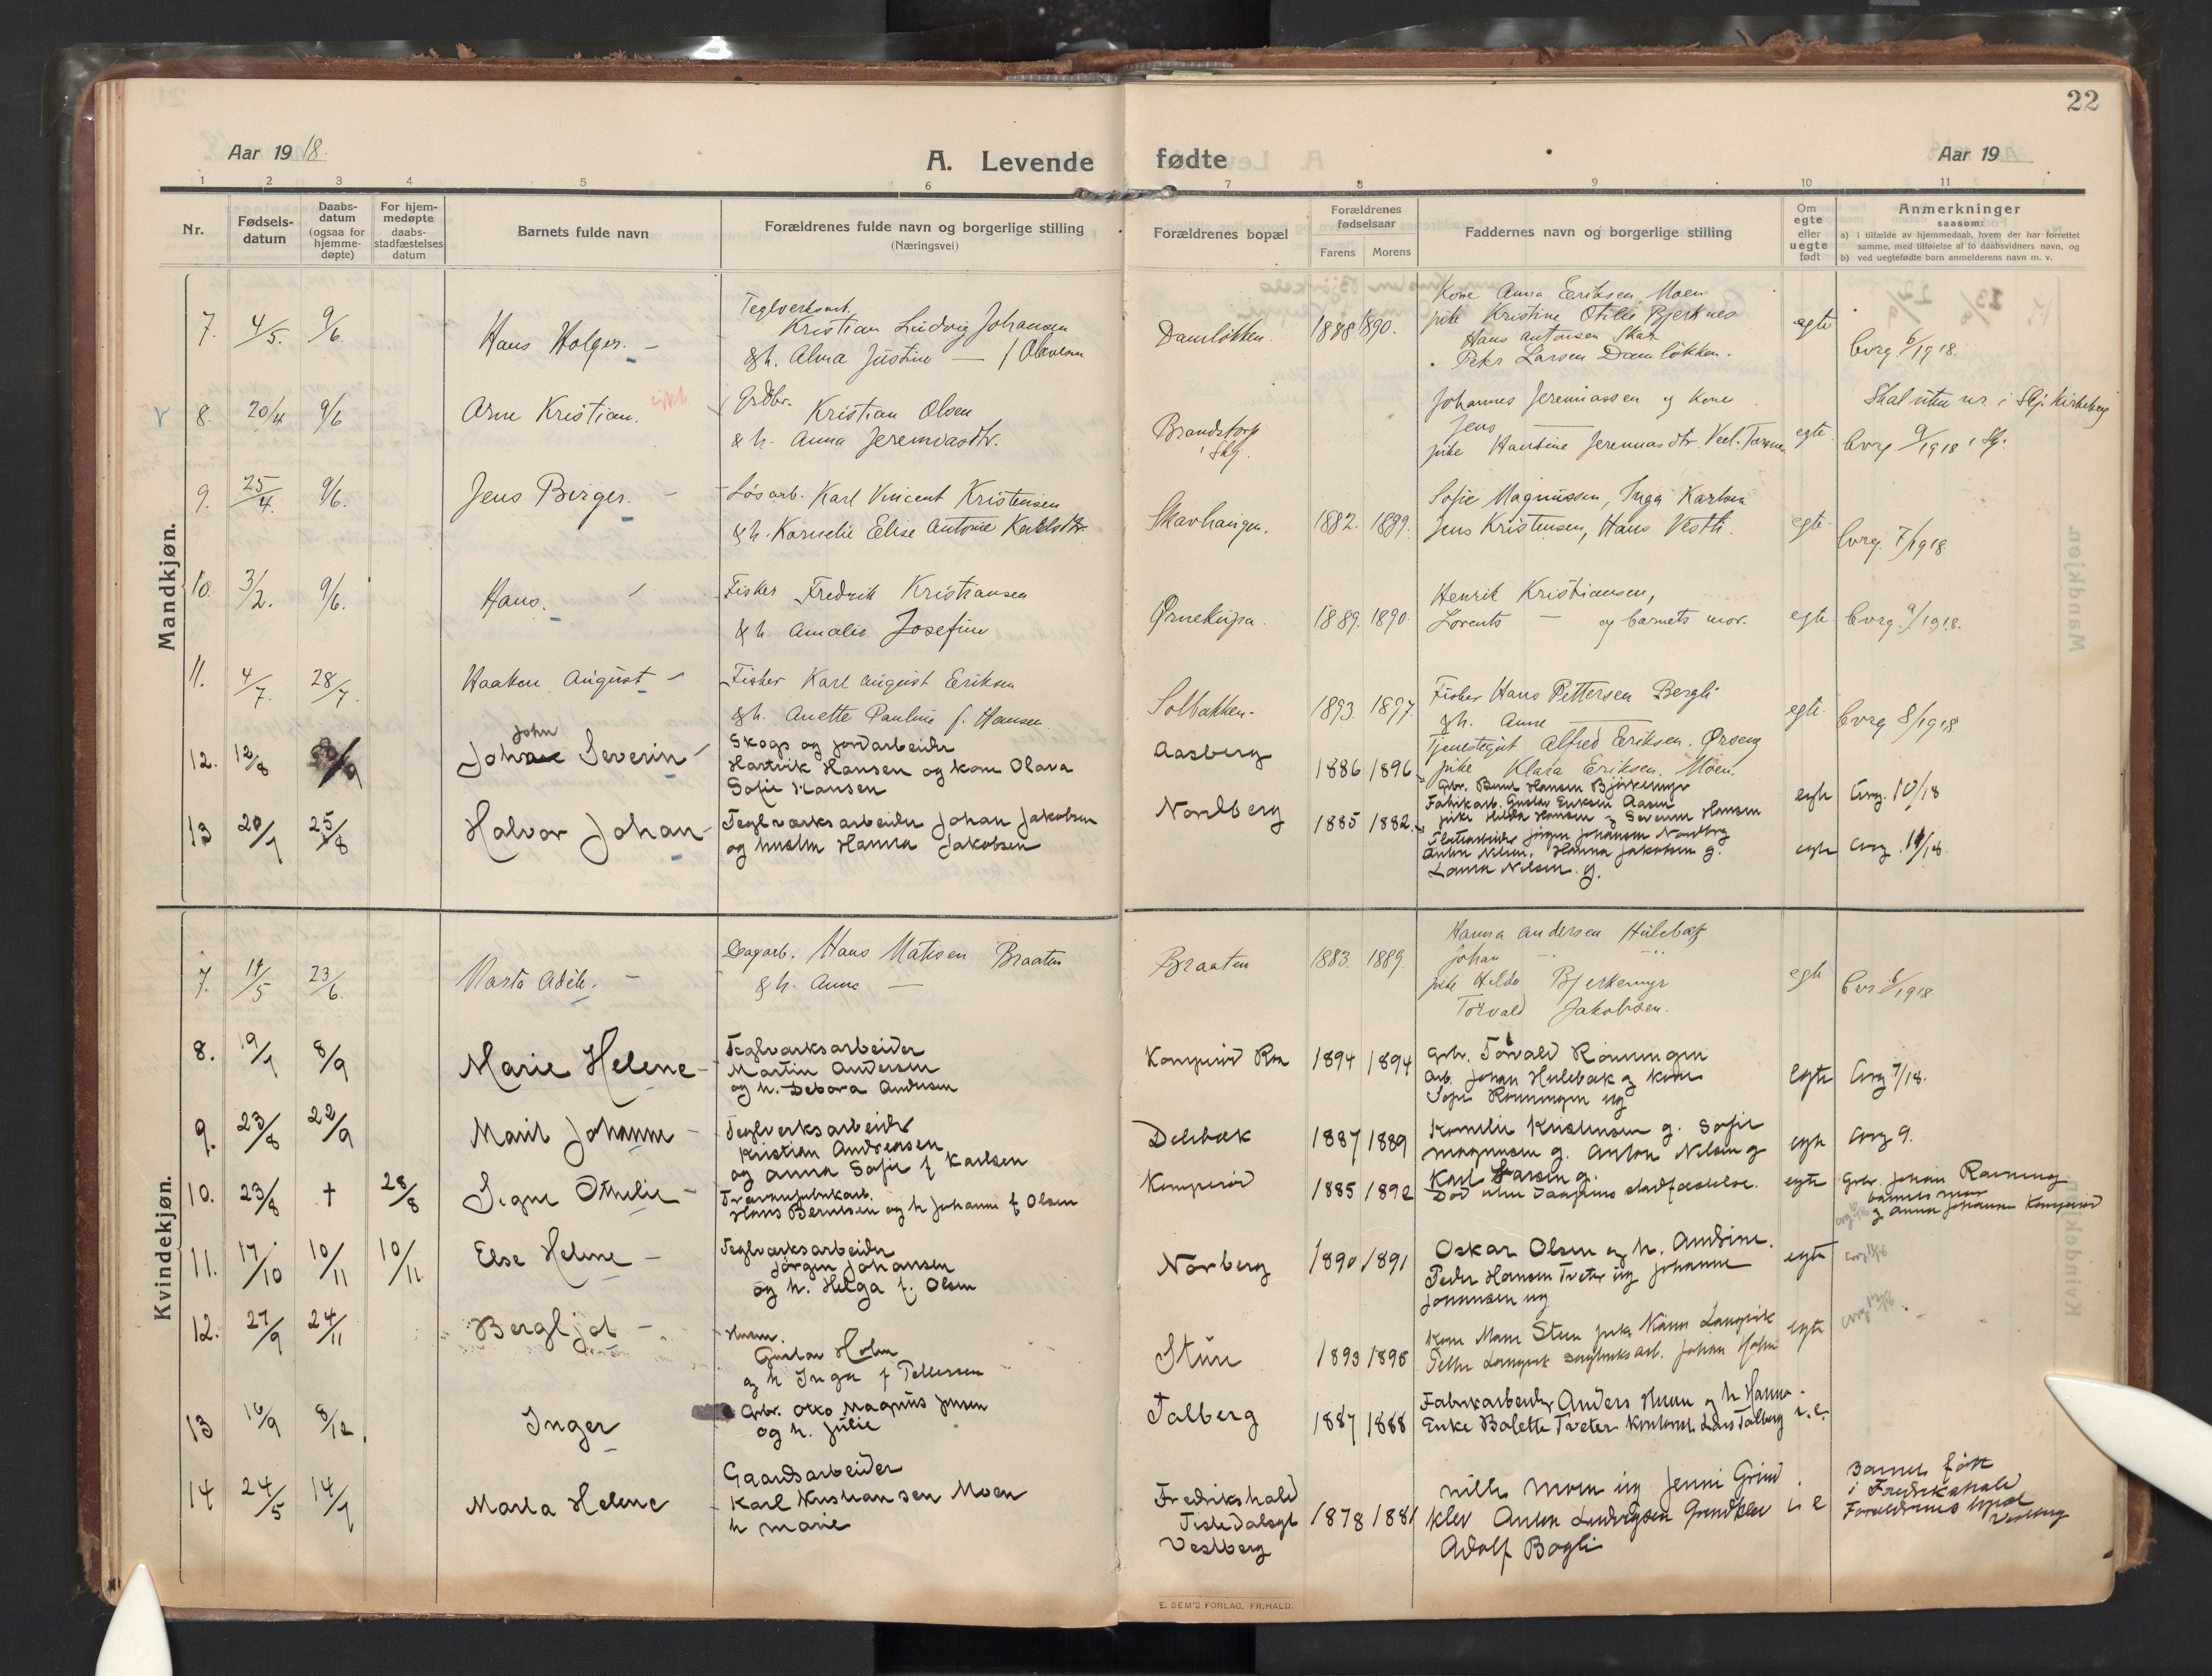 22
Aar 1918.
A. Levende fødte
Aar 19
1 2 3 4 5 6 7 8 9 10 11
Nr.
Fødsels-
datum
Daabs-
datum
(ogsaa for
hjemme-
døpte)
For hjem-
medøpte
daabs-
stadfæstelses
datum
Barnets fulde navn
Forældrenes fulde navn og borgerlige stilling
(Næringsvei)
Forældrenes bopæl
Forældrenes
fødselsaar
Farens Morens
Faddernes navn og borgerlige stilling
Om
egte
eller
uegte
født
Anmerkninger
saasom:
a) i tilfælde av hjemmedaab, hvem der har forrettet
samme, med tilføielse af to daabsvidners navn, og
b) ved uegtefødte barn anmelderens navn m. v.
Mandkjøn.
7. 4/5. 9/6. Hans Holger. –
Kristian Ludvig Johansen
&h. Alma Justine —
Damløkken. 1888 1890.
Kone Anna Eriksen, Moen
pike Kristine Otilie Bjerknes
Hans Antonsen Skar
Peter Larsen Damløkken.
egte
6/1918.
8. 20/4 9/6 Arne Kristian.
Grdbr. Kristian Olsen
& h. Anna Jeremiasdtr.
Brandstorp
i Skj.
Johannes Jeremiassen og kone
Jens —
pike Jeremiasdtr.
egte
Skal uten nr. i Skj. Kirkebog
9/1918 i Skj.
9. 25/4. 9/6. Jens Birger. –
Løsarb. Karl Vincent Kristensen
& h. Kornelie Elise Antonie
Skavhaugen. 1882. 1889.
Sofie Magnussen, Inga Karlsen
Jens Kristensen, Hans
egte
7/1918
10. 3/2. 9/6. Hans.
Fisker Fredrik Kristiansen
& h. Amalie Josefine
1889. 1890.
Henrik Kristiansen,
Lorents — og barnets mor.
egte
9/1918.
11. 4/7. 28/7. Haakon August –
Fisker Karl August Eriksen
&h. Anette Pauline f. Hansen
Solbakken. 1893. 1897.
Fisker Hans Pettersen Bergli
&h. Anne —
Tjenestegut Alfred Eriksen. Ørseng
pike Klara Eriksen. Moen.
egte
8/1918.
12. 12/8
John
Severin –
Skogs og jordarbeider
Hartvik Hansen og kone Olava
Sofie Hansen
Aasberg 1886 1896
Gbr. Hansen Bjørkemyr
Fabrikarb. Gustav Eriksen Aasen
pike Hilda Hansen g Severin Hansen
egte
10/18
13 20/7 25/8 Halvor Johan –
Teglværksarbeider Johan Jakobsen
og hustru Hanna Jakobsen
Nordberg 1885 1882.
Jørgen Johansen Nordberg
Anton Nilsen. Hanna Jakobsen g.
Laura Nilsen. g.
egte
Kvindekjøn.
7. 23/6. Marta Adele. –
Dagarb. Hans Matisen Braaten
& h. Anne —
Braaten 1883. 1889.
Hanna Andersen Hulebæk
Johan
pike Hilda Bjerkemyr
Torvald Jakobsen.
egte
6/1918
8. 19/7 8/9 Marie Helene –
Teglværksarbeider
Martin Andersen
og h. Debora Andersen
1894 1894
Gbr. Torvald Rønningen
Arb. Johan Hulebæk g kone
Sofie Rønningen ug
egte
7/18.
9. 23/8 22/9 Marit Johanne –
Teglverksarbeider
Kristian Andreasen
og Anna Sofie f Karlsen
Delebæk 1887 1889
Kornelie Kristensen g. Sofie
Magnusen g. Anton Nilsen g
Karl Larsen g.
egte
9.
10. 23/8 † 28/8 Signe Othelie –
Hans Berntsen og h Johanne f Olsen
Komperød 1885 1892
Død uten daapens stadfæstelse.
egte
Gbr. Johan Rønning
barnets mor
g Anna Johansen Komperød
11. 17/10 10/11 10/11 Else Helene –
Teglværksarbeider
Jørgen Johansen
og h. Helga f. Olsen
Norberg 1890 1891
Oskar Olsen og h. Andrine.
Peder Hansen Tveter ug Johanne
Johansen ug
egte
12. 27/9 24/11 Bergljot –
Husm.
Gustav Holm
og h Inga f Pettersen
1893 1898
Johan Holm
egte
13 16/9 8/12. Inger
Gbr. Otto Magnus Jensen
og h. Julie
Talberg 1887 1888
Fabrikarbeider Anders og h Hanna.
Enke Bolette Tveter Lars Talberg
i. e.
14 24/5 14/7 Marta Helene
Gaardsarbeider
Karl Kristiansen Moen
h Marie
Fredrikshald
Tistedalsgt
Vestberg
1878 1881
Nills Moen ug Jenni Grind
klev Anton Ludvigsen Grindklev
Adolf Bøgli
i. e
Barnets født
i Fredrikshald
Forældrenes bopæl
E. SEM'S FORLAG, FR.HALD.